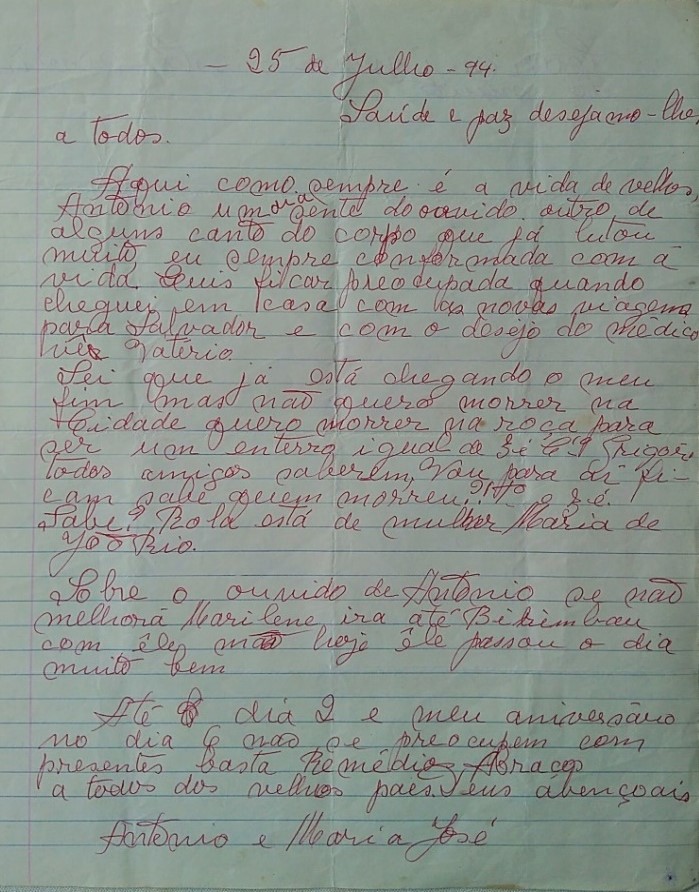 - 25 de Julho - 94.
Saúde e paz desejamo-lhe,
a todos.
Aqui como sempre é a vida de velhos,
Antonio um dia sente do ouvido outro de
alguns canto do corpo que já lutou
muito eu sempre conformada com a
vida. Quis ficar preocupada quando
cheguei em casa com as novas viagens
para Salvador e com o desejo do médico
Valério
Sei que já está chegando o meu
fim mas não quero morrer na
Cidade quero morrer na roça para
ser um enterro igual de Zé
todos amigos saberem, Vou para aí fi-
cam sabe quem morreu? o Zé.
Sabe? Rola está de mulher Maria de
João Rio.
Sobre o ouvido de Antonio se não
melhorá Marilene irá até Bikimbau
com êle mas hoje êle passou o dia
muito bem
Até dia 2 e meu aniversário
no dia 6 não se preocupem com
presentes basta Remédios, Abraços
a todos dos velhos paes. Deus abençoais
Antonio e Maria José